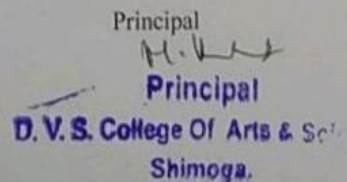 Principal
Principal
D. V. S. College Of Arts & Sc
Shimoga.